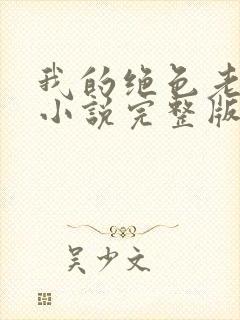 我的绝色老
小说完整版
吴少文